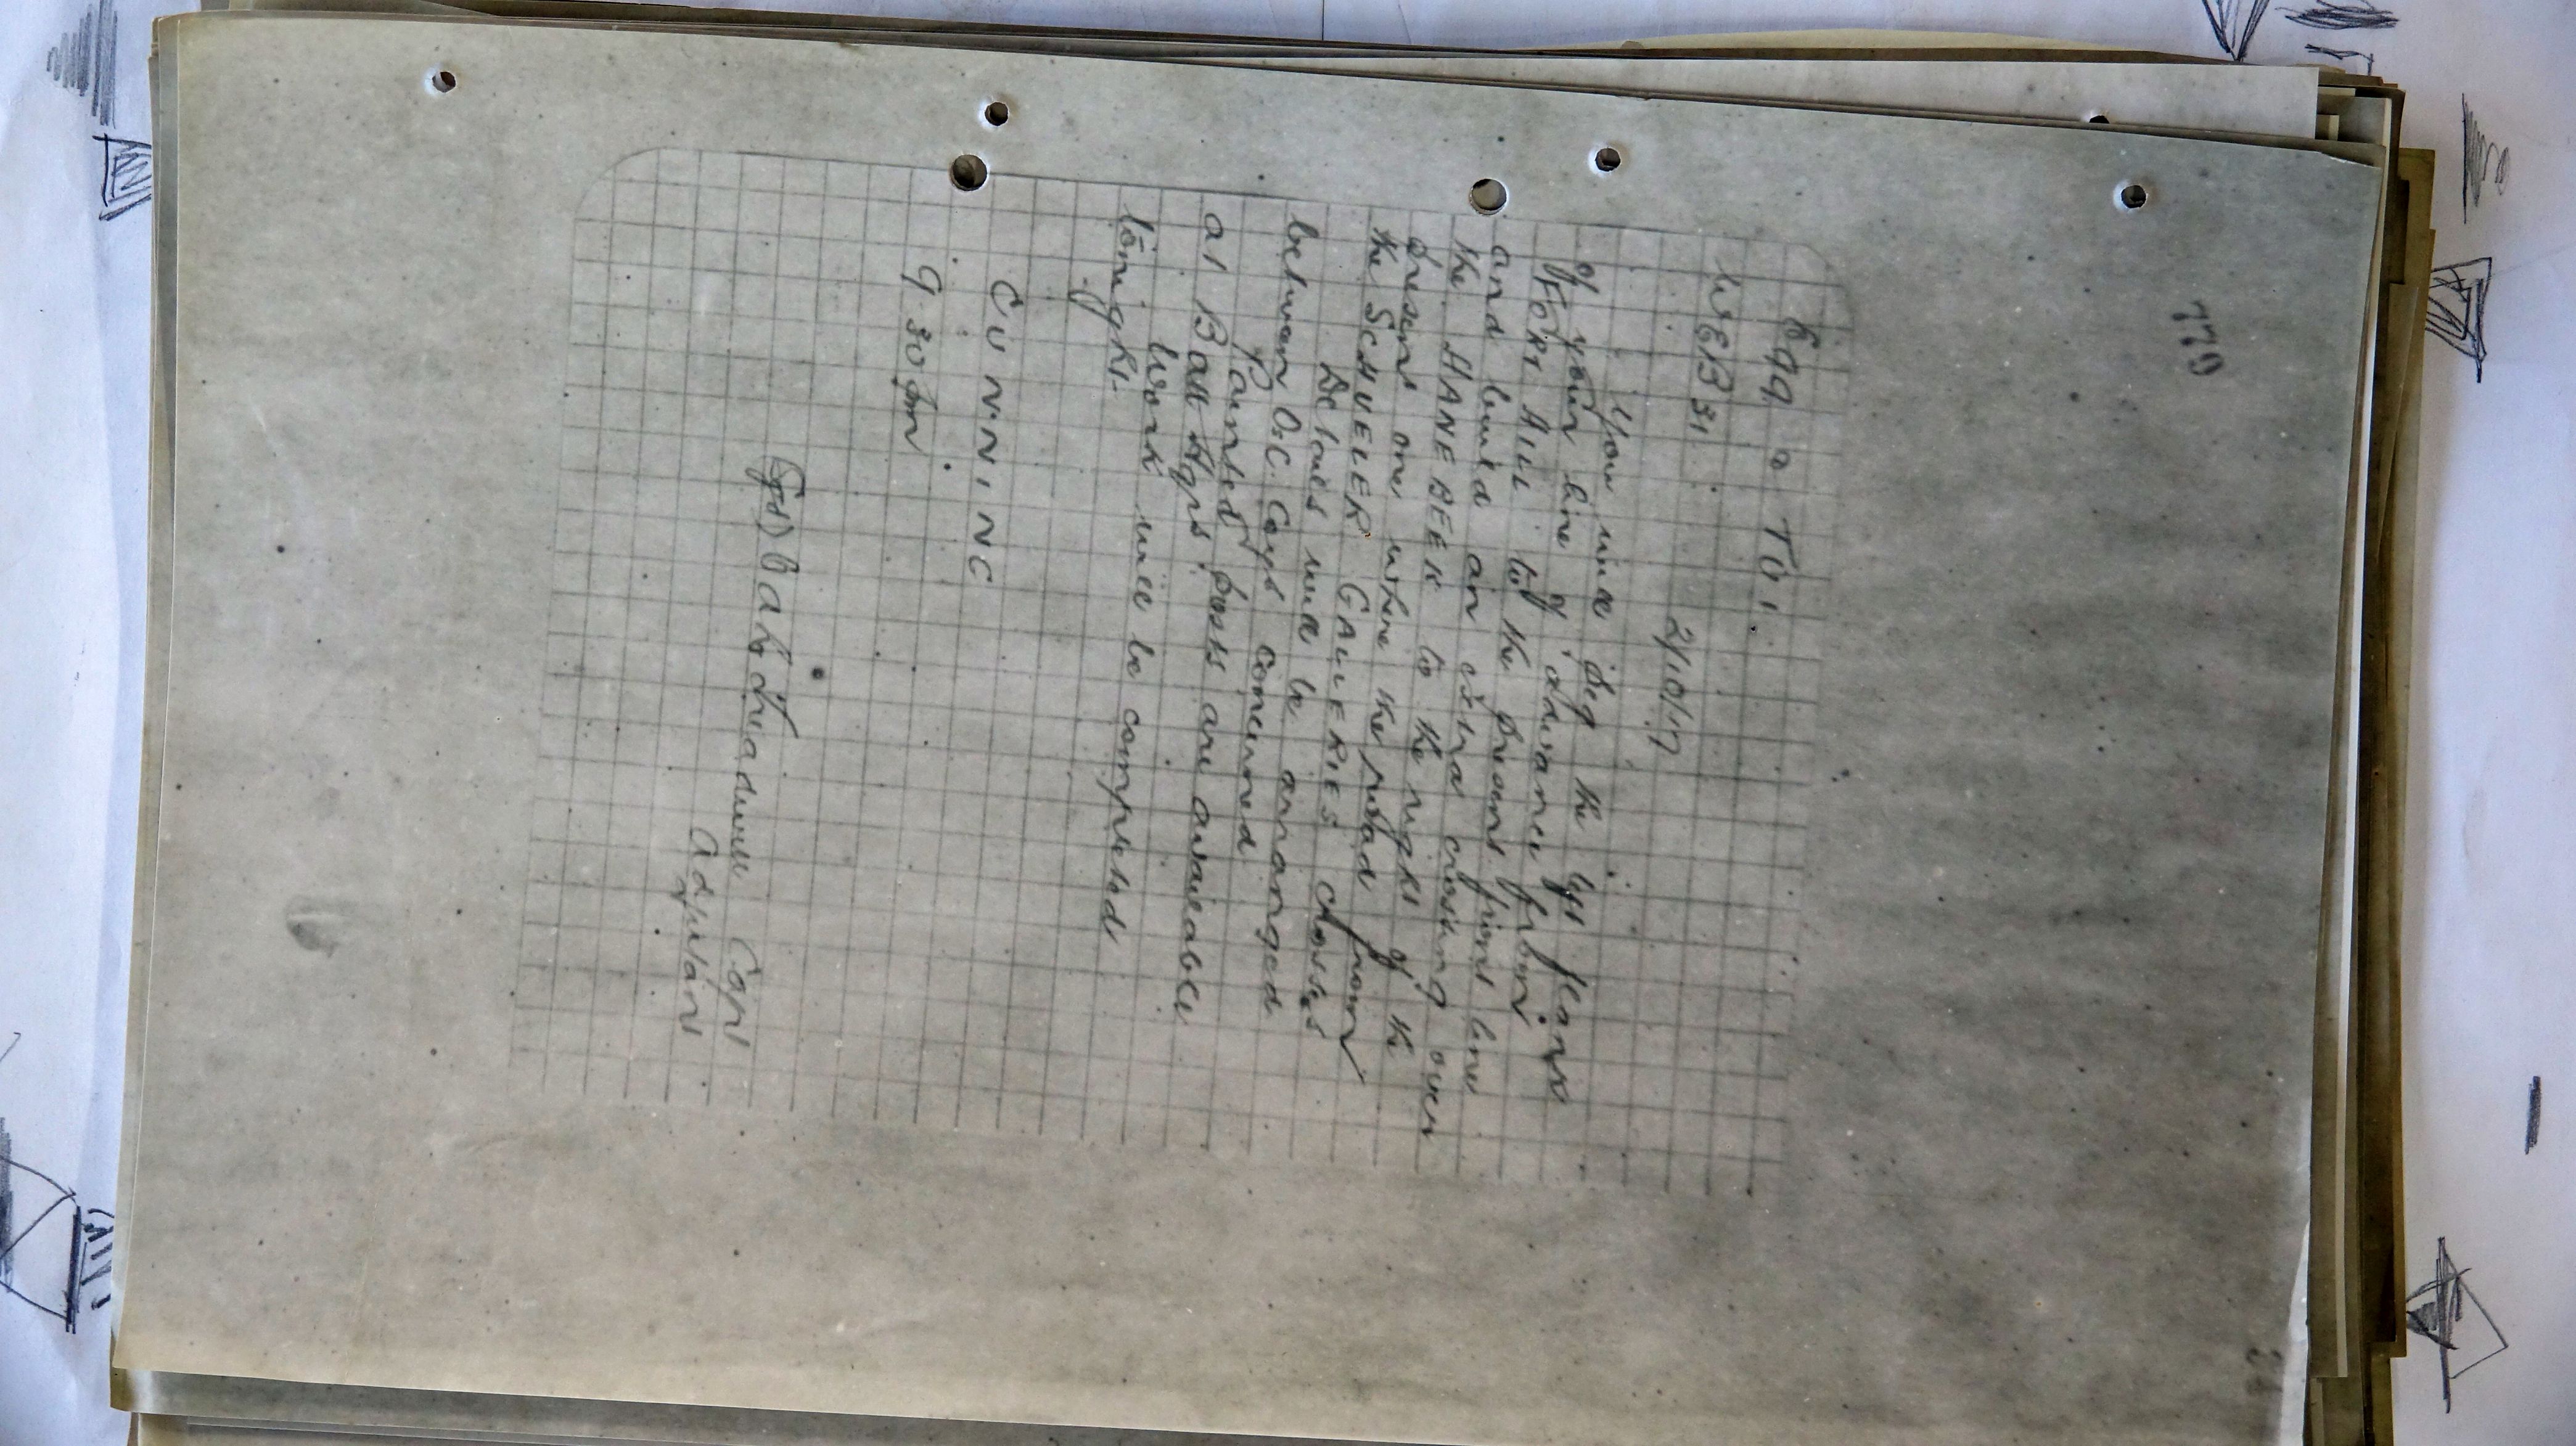 779
6 99 a TO1
WEB 31 2/10/17
You will peg the left flank
of your line of advance from
FORT HILL to the present front line
and build an extra crossing over
the HANEBEEK to the right of the
present one where the road from
the SCHULER GALLERIES crosses
Details will be arranged
between O's.C. Coys concerned
Painted posts are available
at Batt Hqrs.
Work will be completed
tonight.
CUNNING
9.30 am
(Sgd) Capt
Adjutant